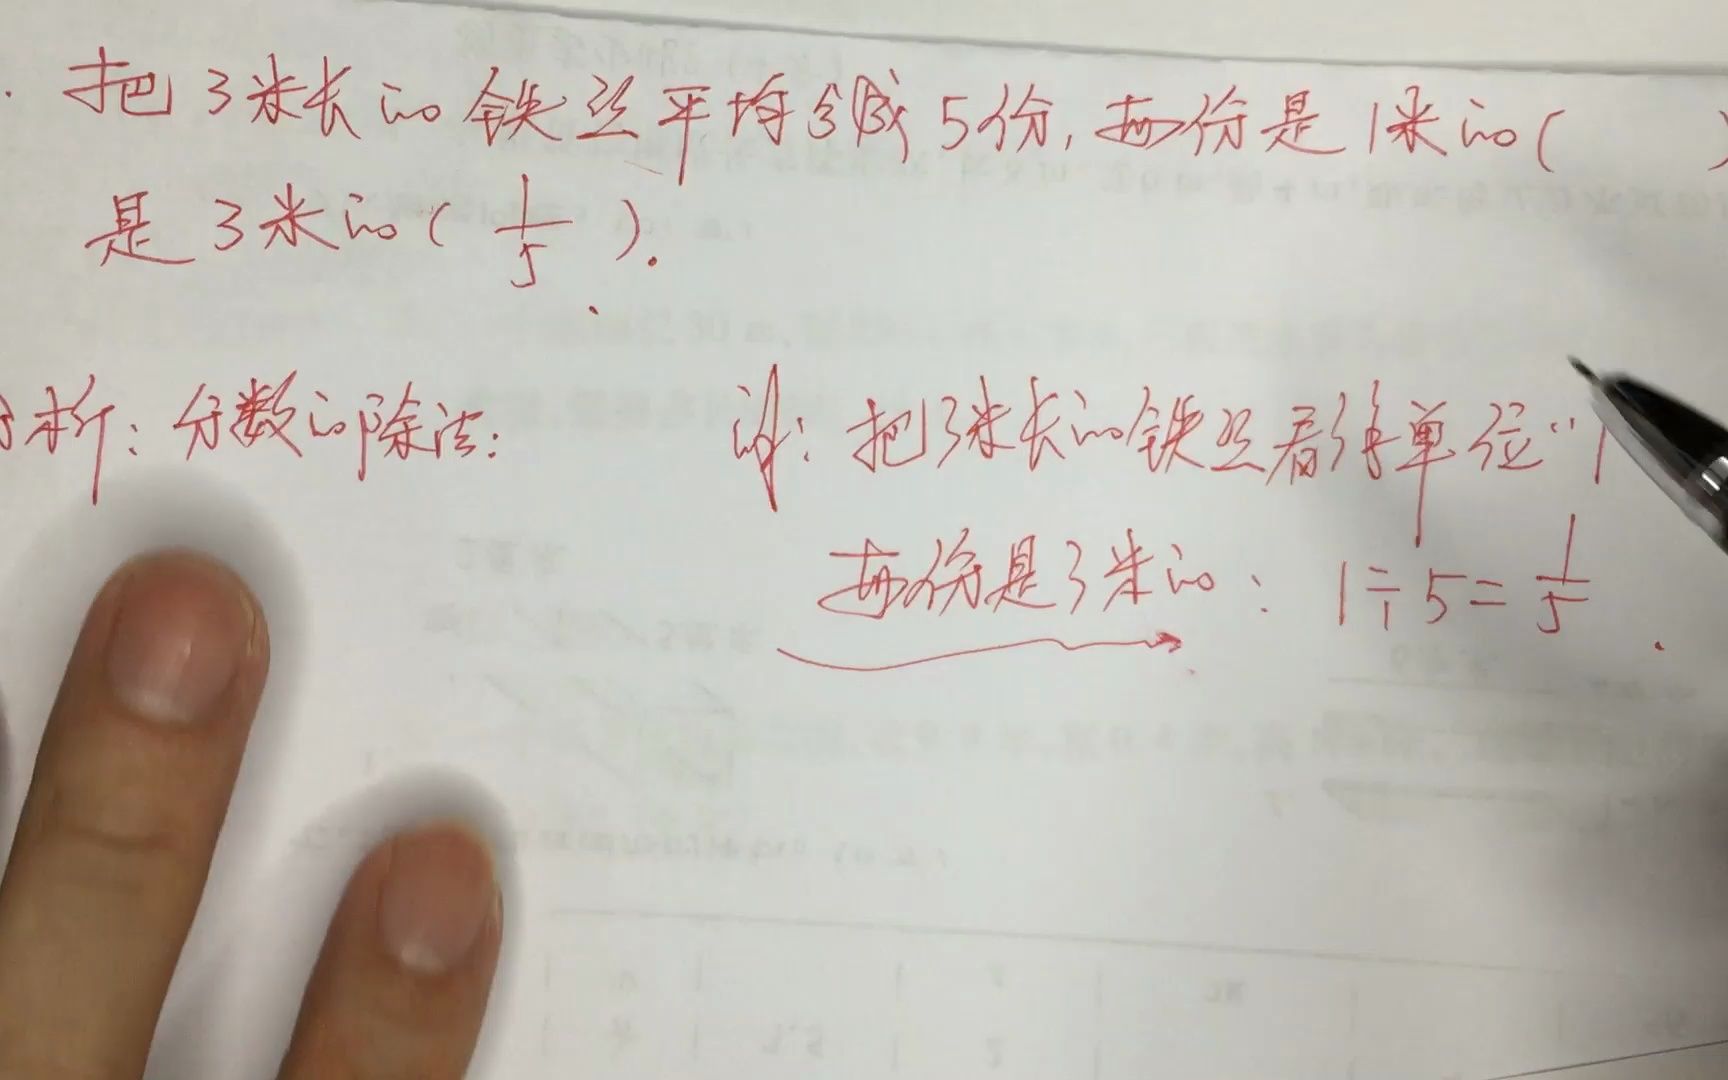 把3米长的铁丝平均分成5份,每份是1米的( )
是3米的( 1/5 ).
分析:分数的除法: 
解:把3米长的铁丝看作单位“1
每份是3米的: 1÷5=1/5.